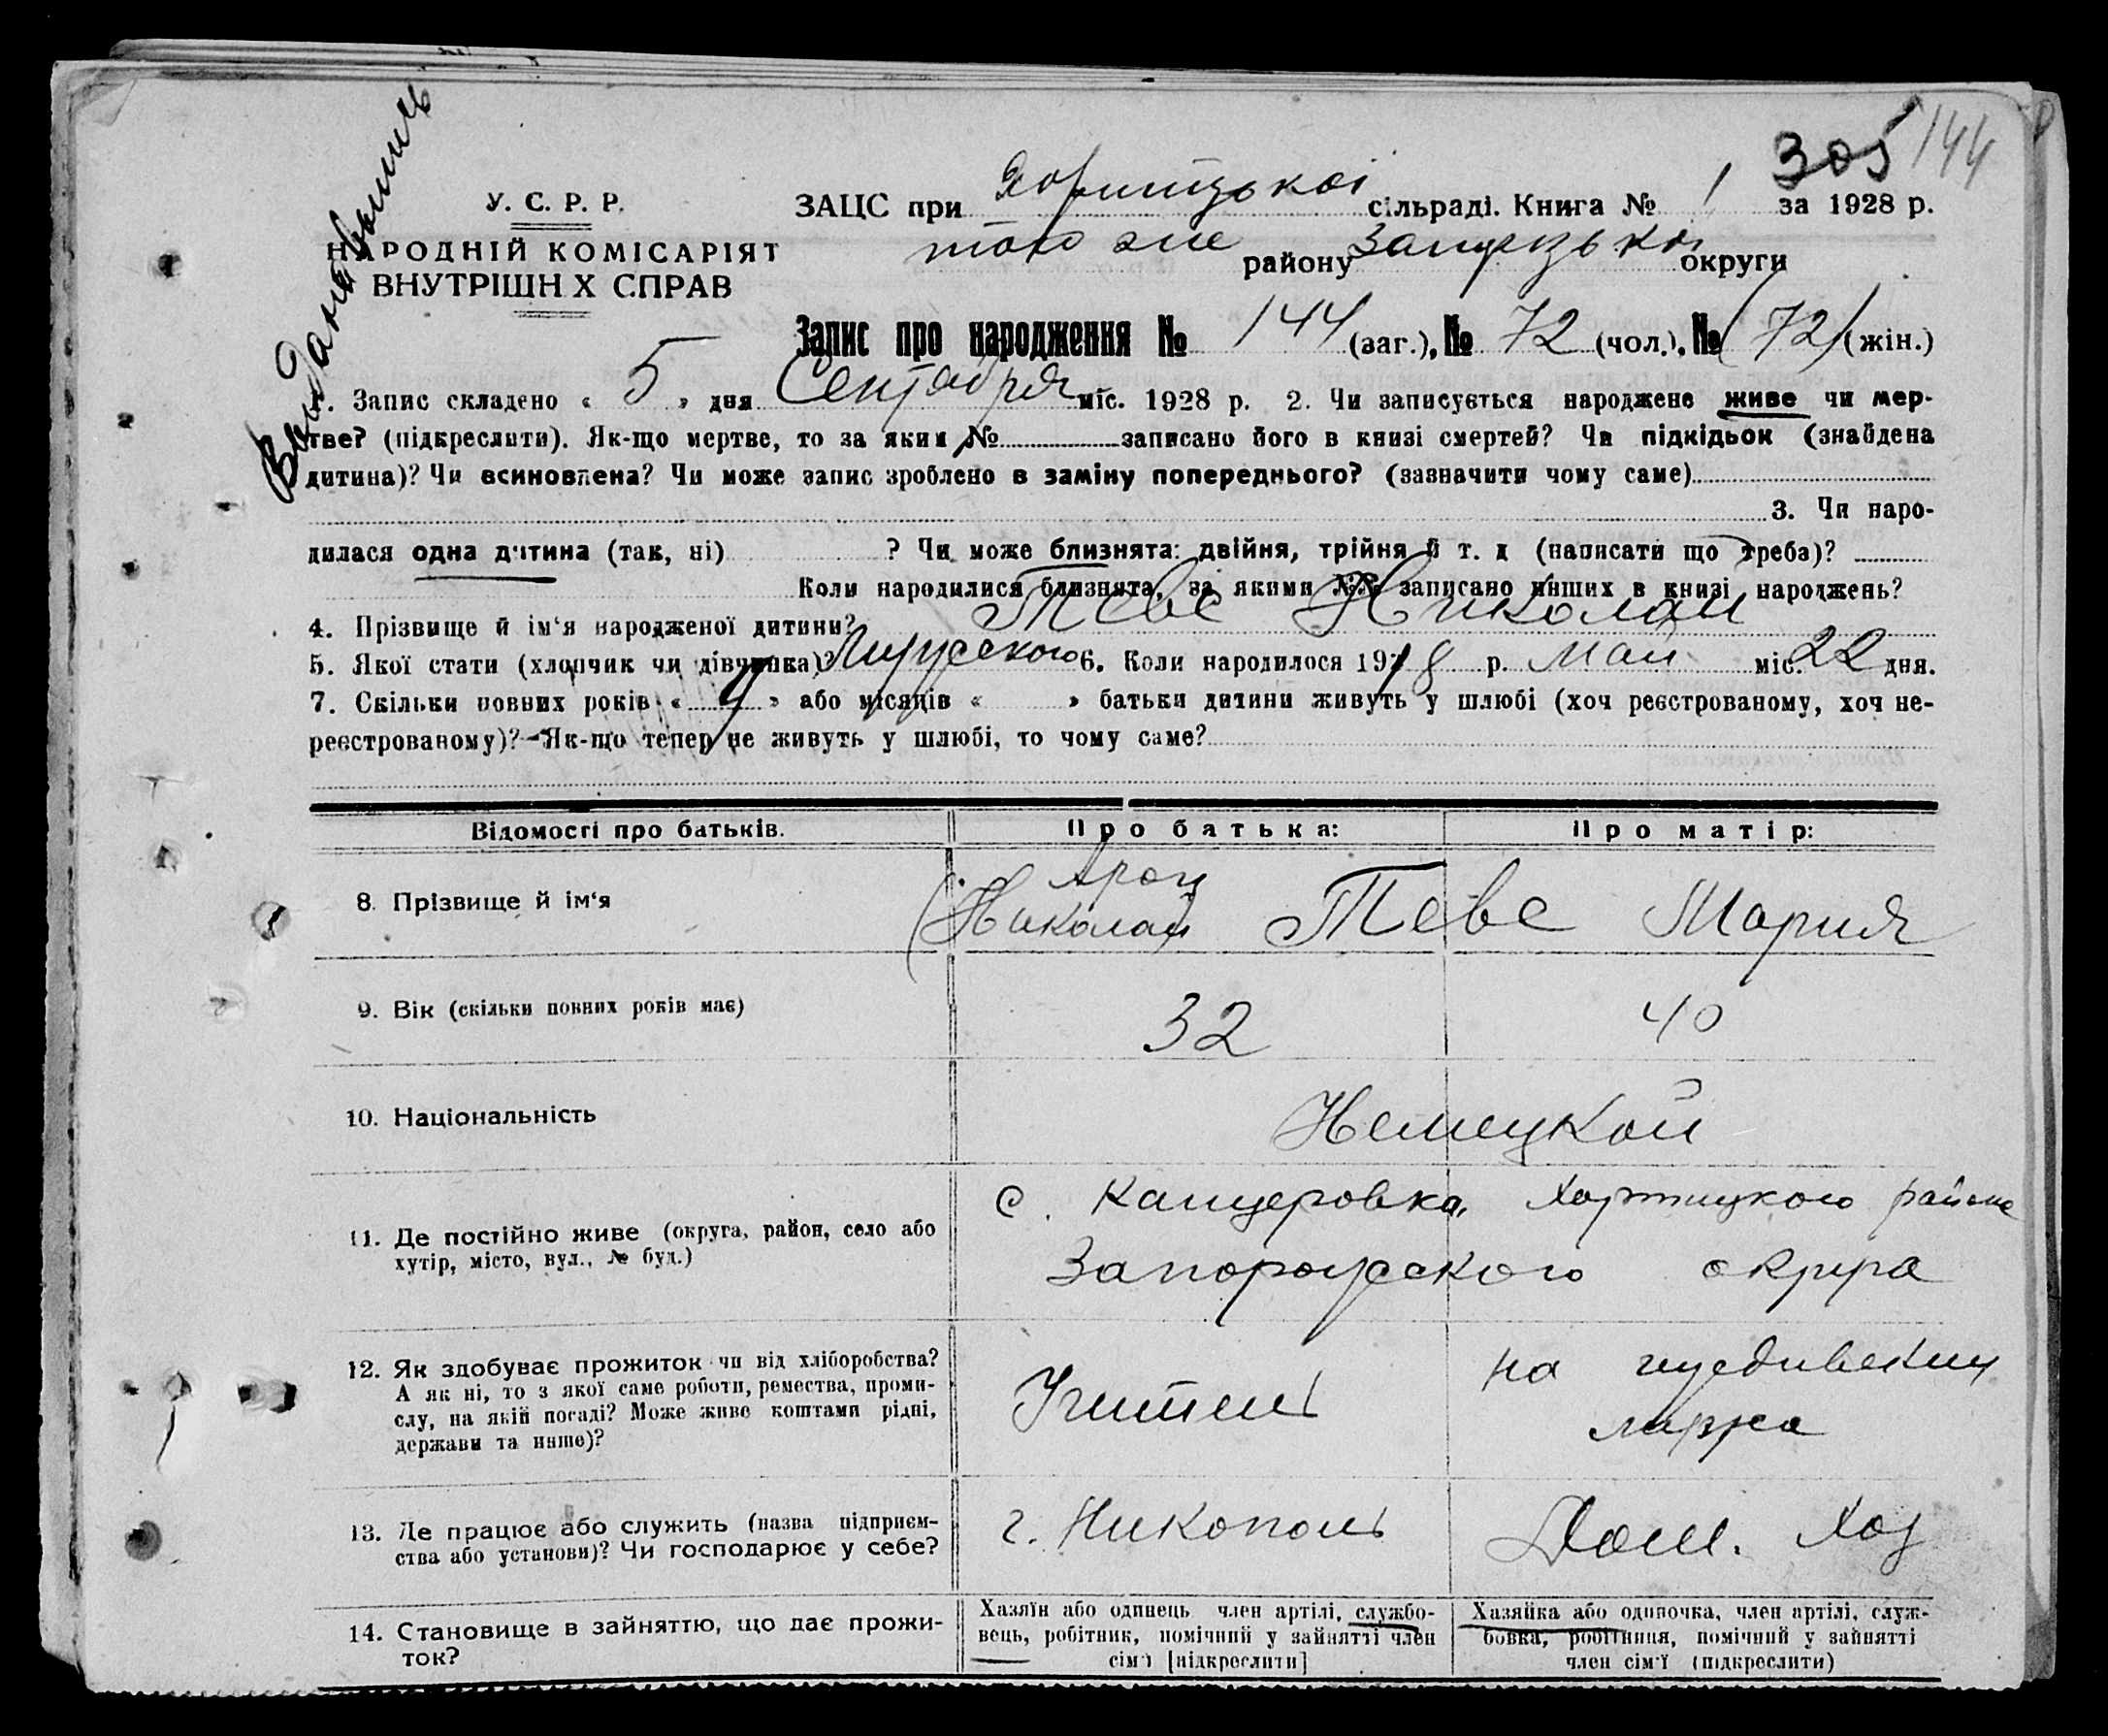 305 144
У. С. Р. Р.
НАРОДНІЙ КОМІСАРІЯТ
ВНУТРІШН Х СПРАВ
ЗАЦС при Хортицькоі сільраді. Книга № 1 за 1928 р.
того же району округи
Запис про народження № 144 (заг.), № 72 (чол.), № (72) (жін.)
1. Запис складено « 5 » дня Сентября міс. 1928 р. 2. Чи записується народжене живе чи мер-
тве? (підкреслити). Як-що мертве, то за яким № записано його в книзі смертей? Чи підкідьок (знайдена
дитина)? Чи всиновлена? Чи може запис зроблено в заміну попереднього? (зазначити чому саме)
3. Чи наро-
дилася одна дитина (так, ні) ? Чи може близнята: двійня, трійня й т. д (написати що треба)?
Коли народилися близнята, за якими №№ записано инших в книзі народжень?
4. Прізвище й ім‘я народженої дитини? Теве Николай
5. Якої стати (хлопчик чи дівчинка)? Мужеского 6. Коли народилося 1918 р. Май міс. 22 дня.
7. Скільки повних років « » або місяців « » батьки дитини живуть у шлюбі (хоч реєстрованому, хоч не-
реєстрованому)? Як-що тепер не живуть у шлюбі, то чому саме?
Відомості про батьків. Про батька: Про матір:
8. Прізвище й ім‘я Николай Теве Мария
9. Вік (скільки повних років має) 32 40
10. Національність Немецкой
11. Де постійно живе (округа, район, село або
хутір, місто, вул., № буд.)
с. Канцеровка, Хортицкого района
Запорожского округа
12. Як здобуває прожиток чи від хліборобства?
А як ні, то з якої саме роботи, ремества, проми-
слу, на якій посаді? Може живе коштами рідні,
держави та инше)?
Учитель
на иждивении
мужа
13. Де працює або служить (назва підприєм-
ства або установи)? Чи господарює у себе?
г. Никополь
Дом. Хоз
14. Становище в зайняттю, що дає прожи-
ток?
Хазяїн або одинець член артілі, службо-
вець, робітник, помічний у зайнятті член
сім‘ї [підкреслити]
Хазяйка або одиночка, член артілі, служ-
бовка, робітниця, помічний у зайнятті
член сім‘ї (підкреслити)